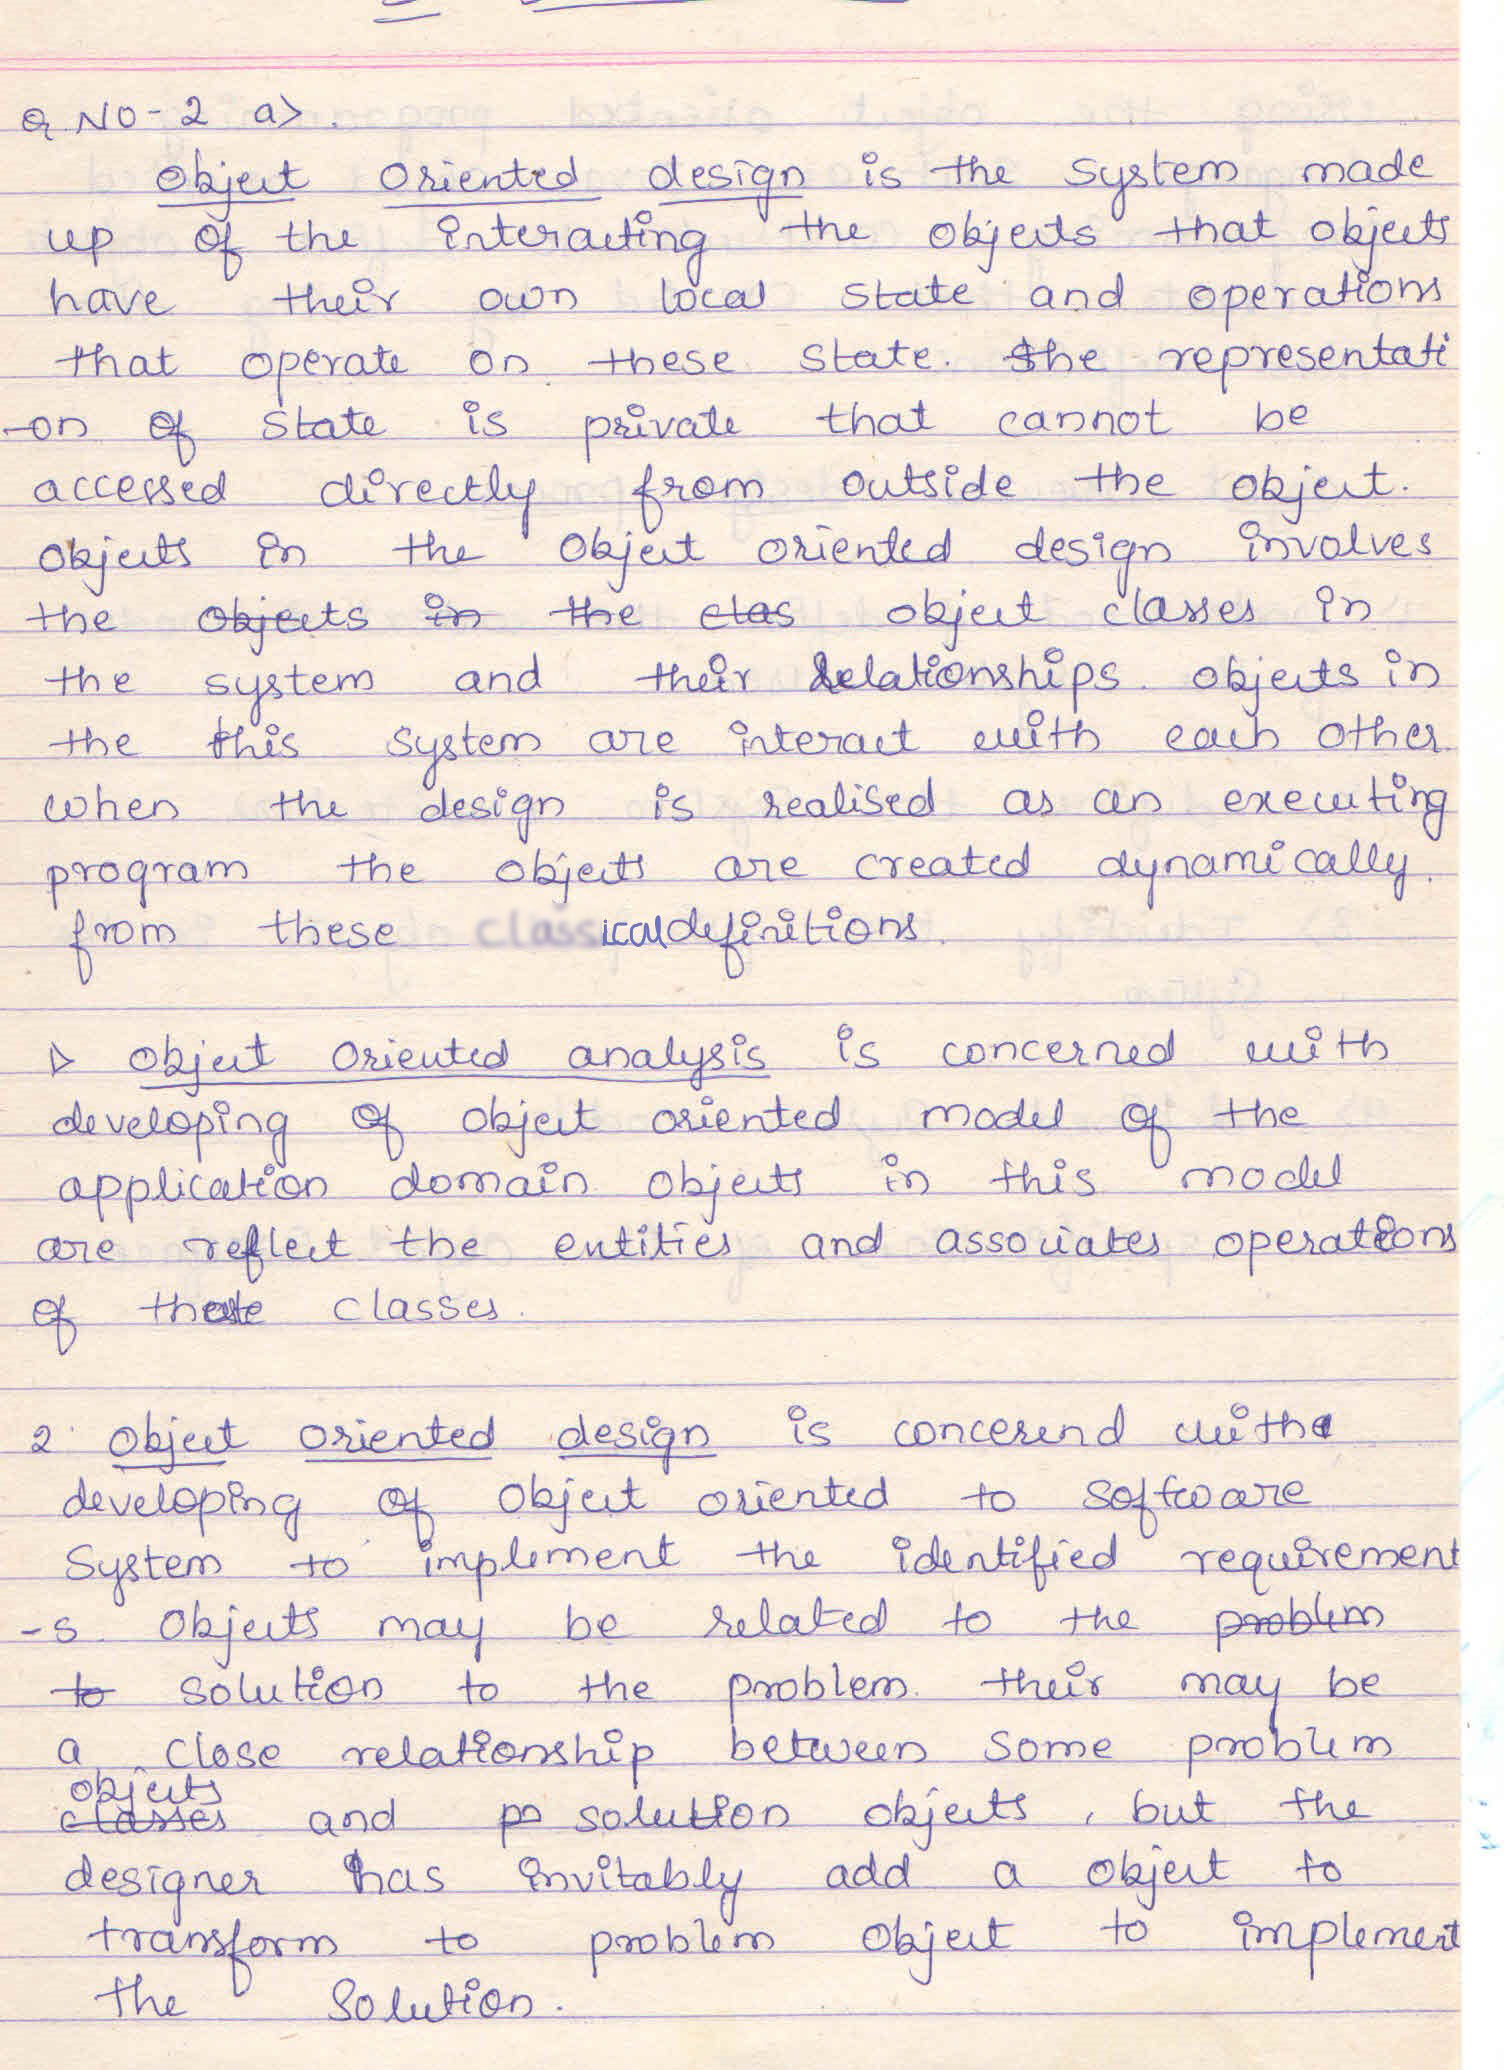 Q NO-2 a>.
Object Oriented design is the system made
up of the interacting the objects that objects
have their own local state and operations
that operate on these state. The representati
-on of state is private that cannot be
accessed directly from outside the object.
Objects in the object oriented design involves
the objects in the clas object classes in
the system and their relationships. objects in
the this system are interact with each other
when the design is realised as an executing
program the objects are created dynamically.
from these classical definitions.
1> Object Oriented analysis is concerned with
developing of object oriented model of the
application domain objects in this model
are reflect the entities and associates operations
of classes.
2. Object oriented design is concerend with
developing of object oriented to software
System to implement the identified requirement
-s. Objects may be related to the problem
to solution to the problem. their may be
a close relationship between some problem
objects
classes and solution objects, but the
designer has invitably add a object to
transform to problem object to implement
the Solution.